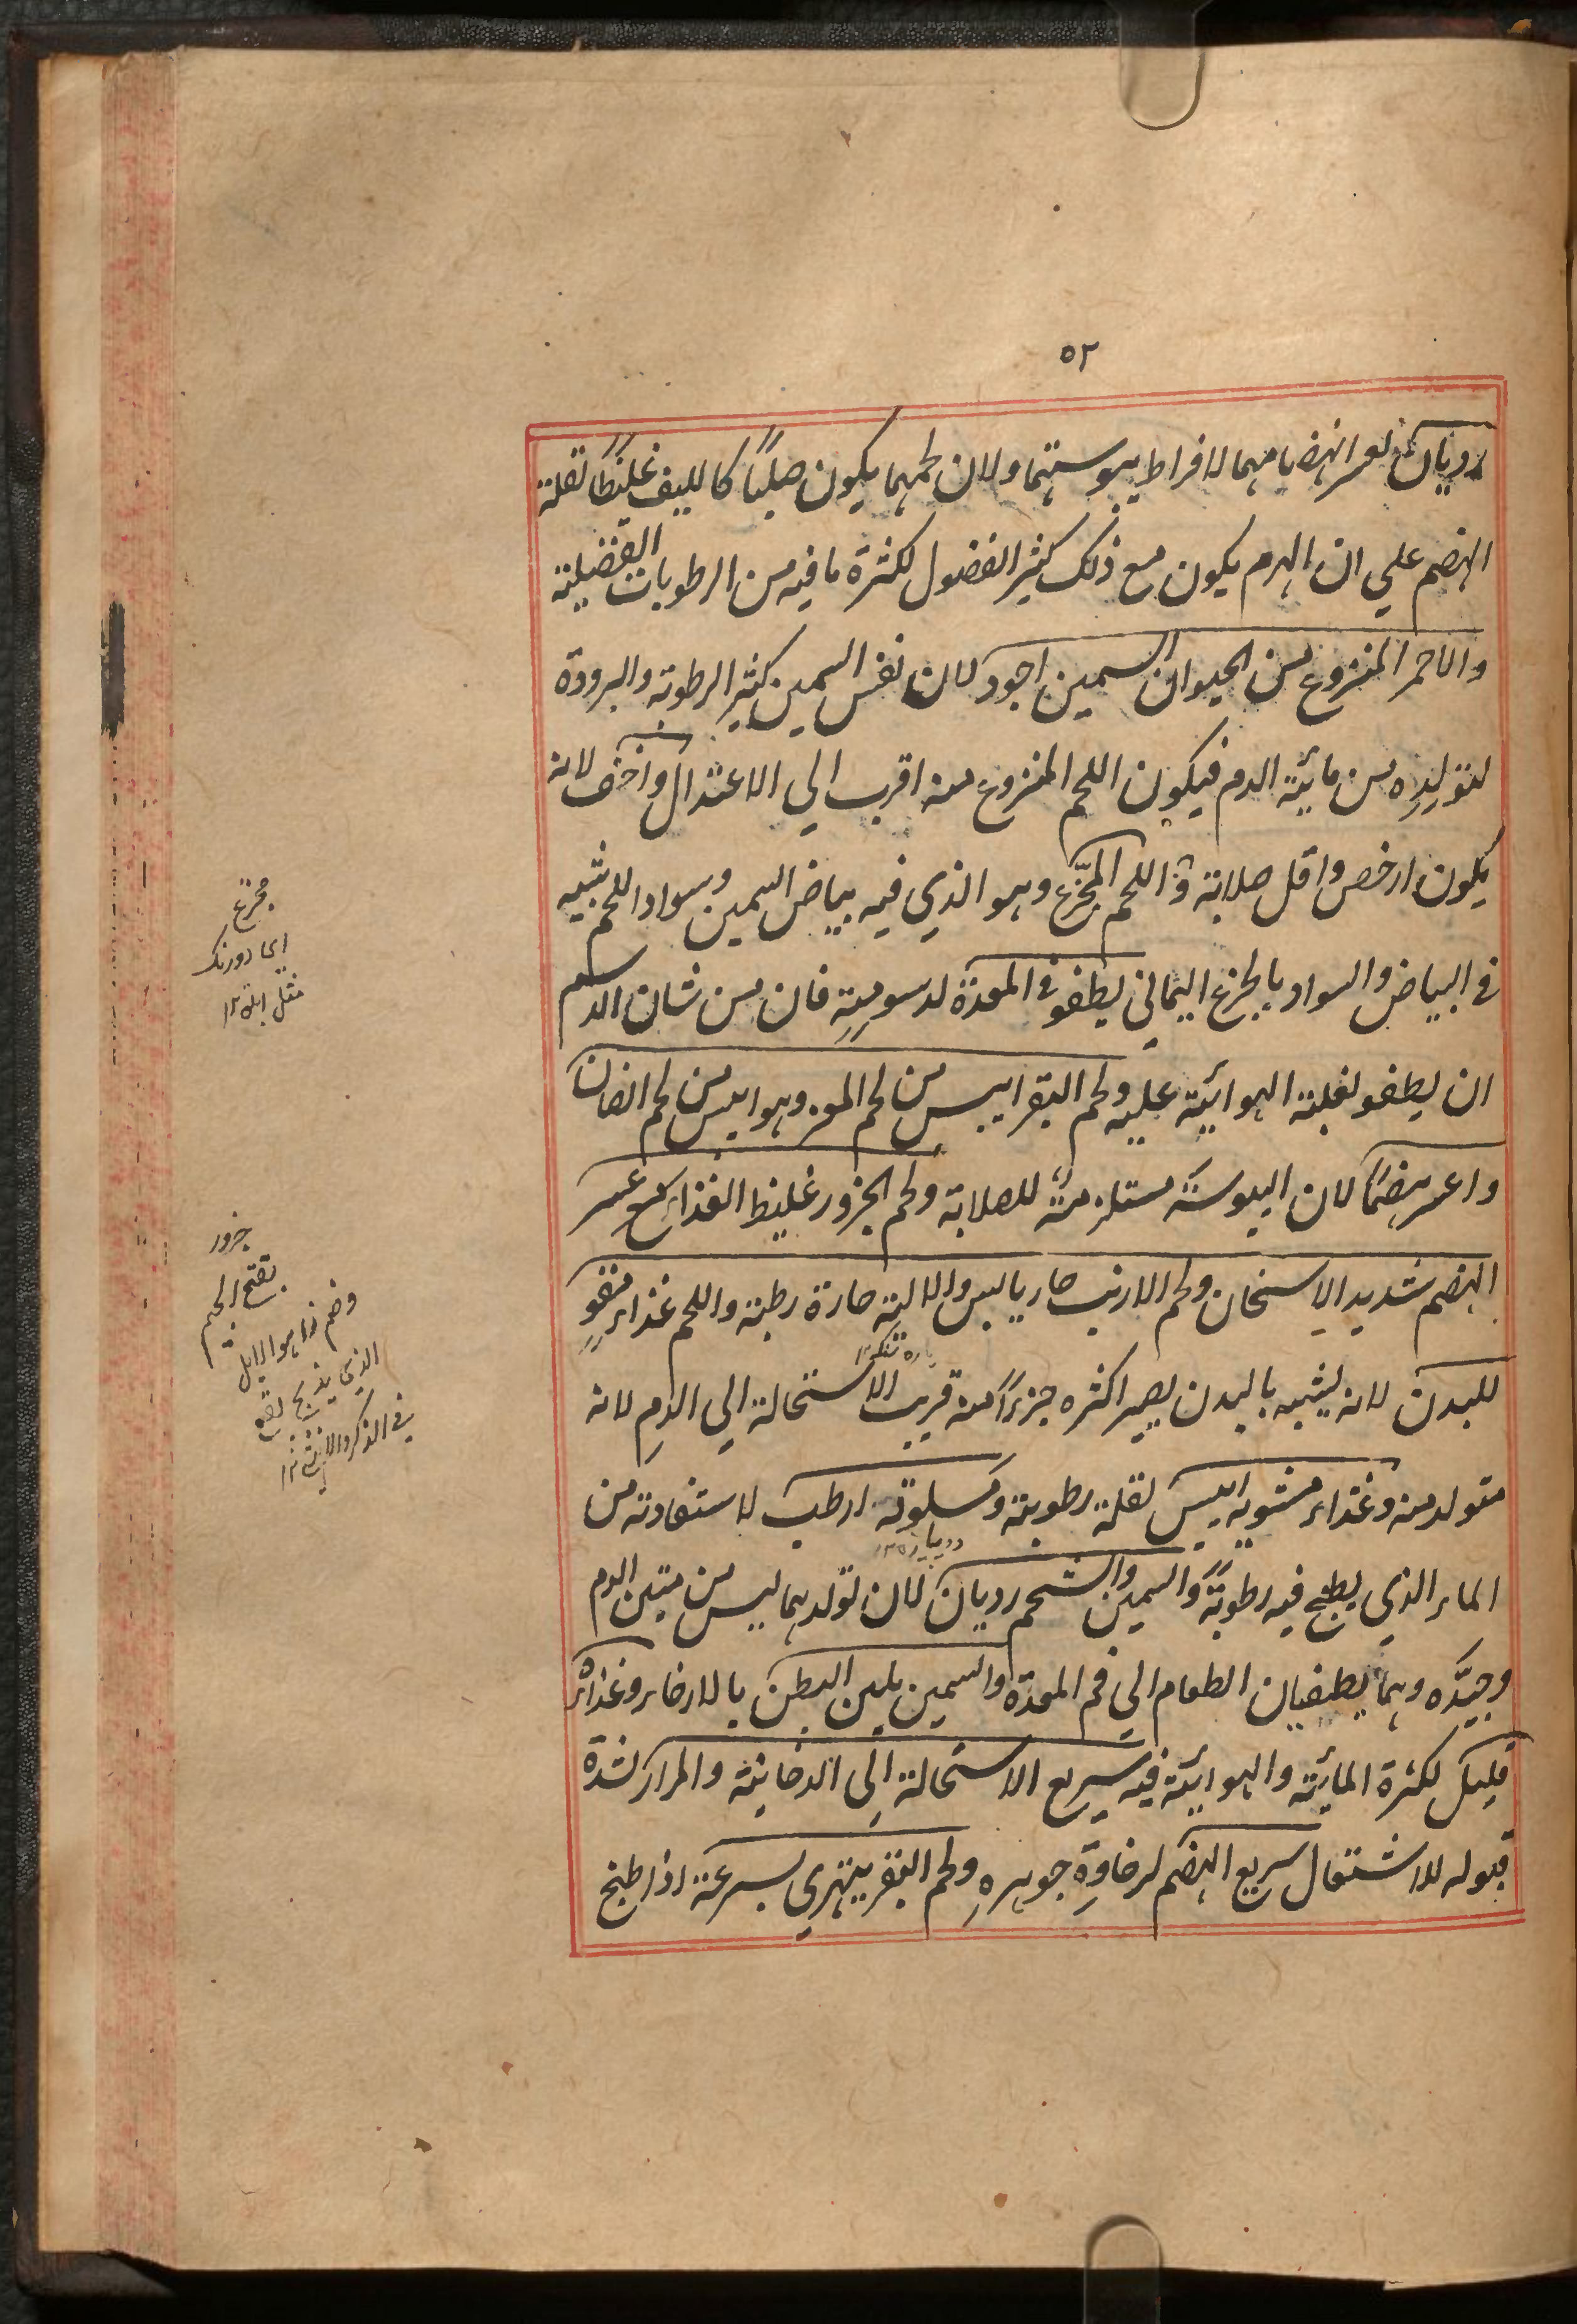 ٥٢
رديان لعسر انهضامهما لافراط يبوستهما ولان لحمهما يكون صلبًا كالليف غليظًا لقلة
الهضم علي ان الهرم يكون مع ذلك كثير الفضول لكثرة ما فيه من الرطوبات الفضلية
والاحمر المنزوع من الحيوان السمين اجود لان نفس السمين كثير الرطوبة والبرودة
لتولده من مائية الدم فيكون اللحم المنزوع منه اقرب الي الاعتدال واخف لانه
يكون ارخص واقل صلابة و اللحم المجزّع وهو الذي فيه بياض السمين وسواد اللحم شبيه
في البياض والسواد بالجزع اليماني يطفو في المعدة لدسومته فان من شان الدسم
ان يطفو لغلبة الهوائية عليه ولحم البقر ايبس من لحم المعز وهو ايبس من لحم الضان
واعسر هضمًا لان اليبوسة مستلزمة للصلابة ولحم الجزور غليظ الغذاء مع عسر
الهضم شديد الاسخان ولحم الارنب حار يابس والالية حارة رطبة واللحم غذاء مقوٍ
للبدن لانه يشبه بالبدن يصير اكثره جزءًا منه قريب الاستحالة الي الدم لانه
متولد منه وغذاء مشويه ايبس لقلة رطوبته ومسلوقه ارطب لاستفادته من
الماء الذي يطبخ فيه رطوبةً والسمين والشحم رديان لان تولدهما ليس من متين الدم
وجيّده وهما يطفيان الطعام الي فم المعدة والسمين يلين البطن بالارخاء وغذاؤه
قليل لكثرة المائية والهوائية فيه سريع الاستحالة الى الدخانية والمرار لشدة
قبوله للاشتعال سريع الهضم لرخاوة جوهره ولحم البقر يتهري بسرعة اذا طبخ
مجزع
دورنك
مثل ابلق ١٢
جزور
بفتح الجيم
وضم زا هو الابل
الذي يذبح يقع
في الذكر والانثي ١٢